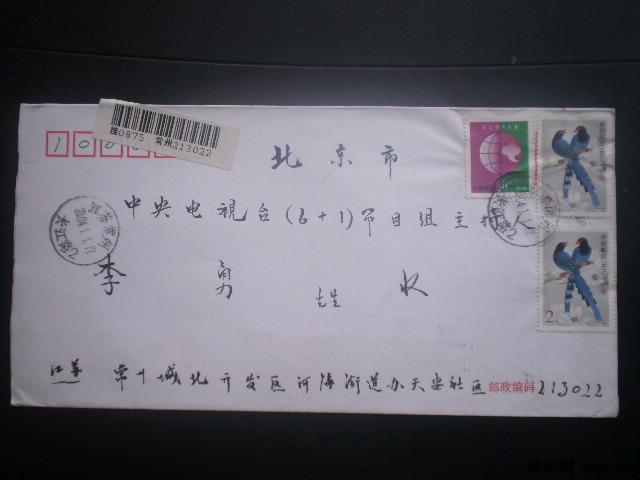 挂0875 常州213022
1000
北京市
中央电視台(6+1)节目组主持人
李勇 收
江苏 常州城北开发区河海街道办天安社区 邮政编码 213022
江苏常州
2004.1.1.12
中国邮政
中国邮政
2